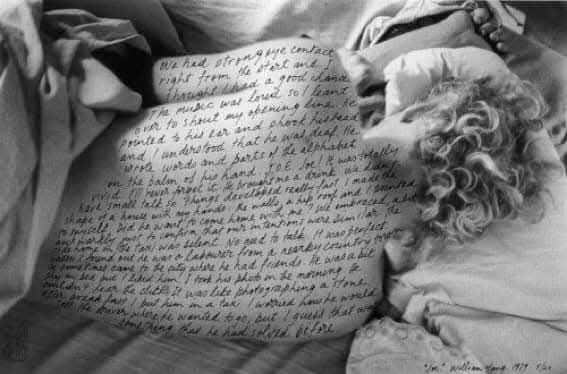 We had strong eye contact
right from the start and I
thought I had a good chance
The music was loud so I leant
over to shout my opening line. He
pointed to his ear and shook his head
and I understood that he was deaf. He
wrote words and parts of the alphabet
on the palm of his hand. J.O.E. Joe! It was totally
vivid. I'll never forget it. He brought me a drink. We didn't
have small talk so things developed really fast. I made the
shape of a house with my hands, the walls, a hip roof and I pointed
to myself. Did he want to come home with me? We embraced, a bit
awkwardly just to confirm that our intentions were similar. The
ride home in the taxi was silent. No need to talk. It was perfect.
Later I found out he was a labourer from a nearby country town
he sometimes came to the city where he had friends. He was a bit
shy in bed but I liked him. I took his photo in the morning. He
couldn't hear the click. It was like photographing a stone.
After breakfast I put him in a taxi. I worried how he would
tell the driver where he wanted to go, but I guess that was
something that he had solved before
"Joe." William Yang 1979